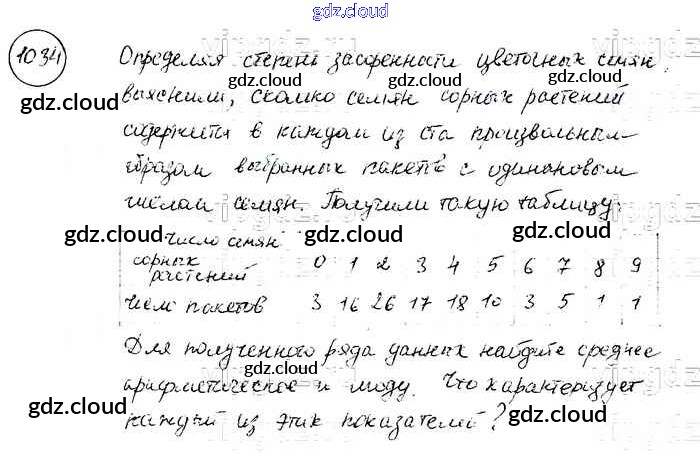 gdz.cloud
1034
Определяя степень засоренности цветочных семян,
gdz.cloud gdz.cloud gdz.cloud
выяснили, сколько семян сорных растений
gdz.cloud
содержится в каждом из ста произвольным
образом выбранных пакетов с одинаковым
числом семян. Получили такую таблицу:
gdz.cloud gdz.cloud gdz.cloud
Число семян
сорных
растений 0 1 2 3 4 5 6 7 8 9
Число пакетов 3 16 26 17 18 10 3 5 1 1
Для полученного ряда данных найдите среднее
арифметическое и моду. Что характеризует
gdz.cloud gdz.cloud gdz.cloud
каждый из этих показателей?